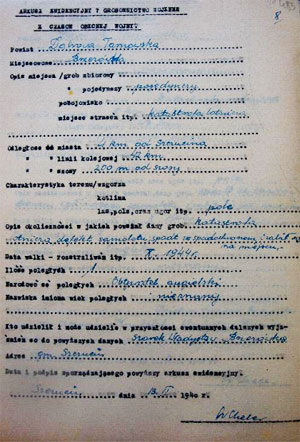 8
ARKUSZ EWIDENCYJNY Y GROBOWNICTWO WOJENNE
Z CZASÓW OBECNEJ WOJNY
Powiat Dąbrowa Tarnowska
Miejscowość
Opis miejsca /grób zbiorowy
" pojedynczy pojedynczy
pobojowisko
miejsce stracen itp. katastrofa lotnicza
Odległość od miasta 4 km od Szczucina
" linii kolejowej km
" szosy 200 m od szosy
Charakterystyka terenu/wzgórza
kotlina
las, pole, oraz ugór itp. pole
Opis okoliczności w jakich powstał dany grób. Katastrofa
lotnicza defekt samolotu, spadł ze spadochronem, zabił się
na miejscu.
Data walki - rozstrzelania itp. 1944 r.
Ilość poległych 1
Narodowość poległych angielski
Nazwiska imiona wiek poległych nieznany
Kto udzielił i może udzielić w przyszłości ewentualnych dalszych wyjaś-
nień co do powyższych danych Władysław
Adres gm. Szczucin
Data i podpis sporządzającego powyższy arkusz ewidencyjny.
Szczucin dnia 194 r.